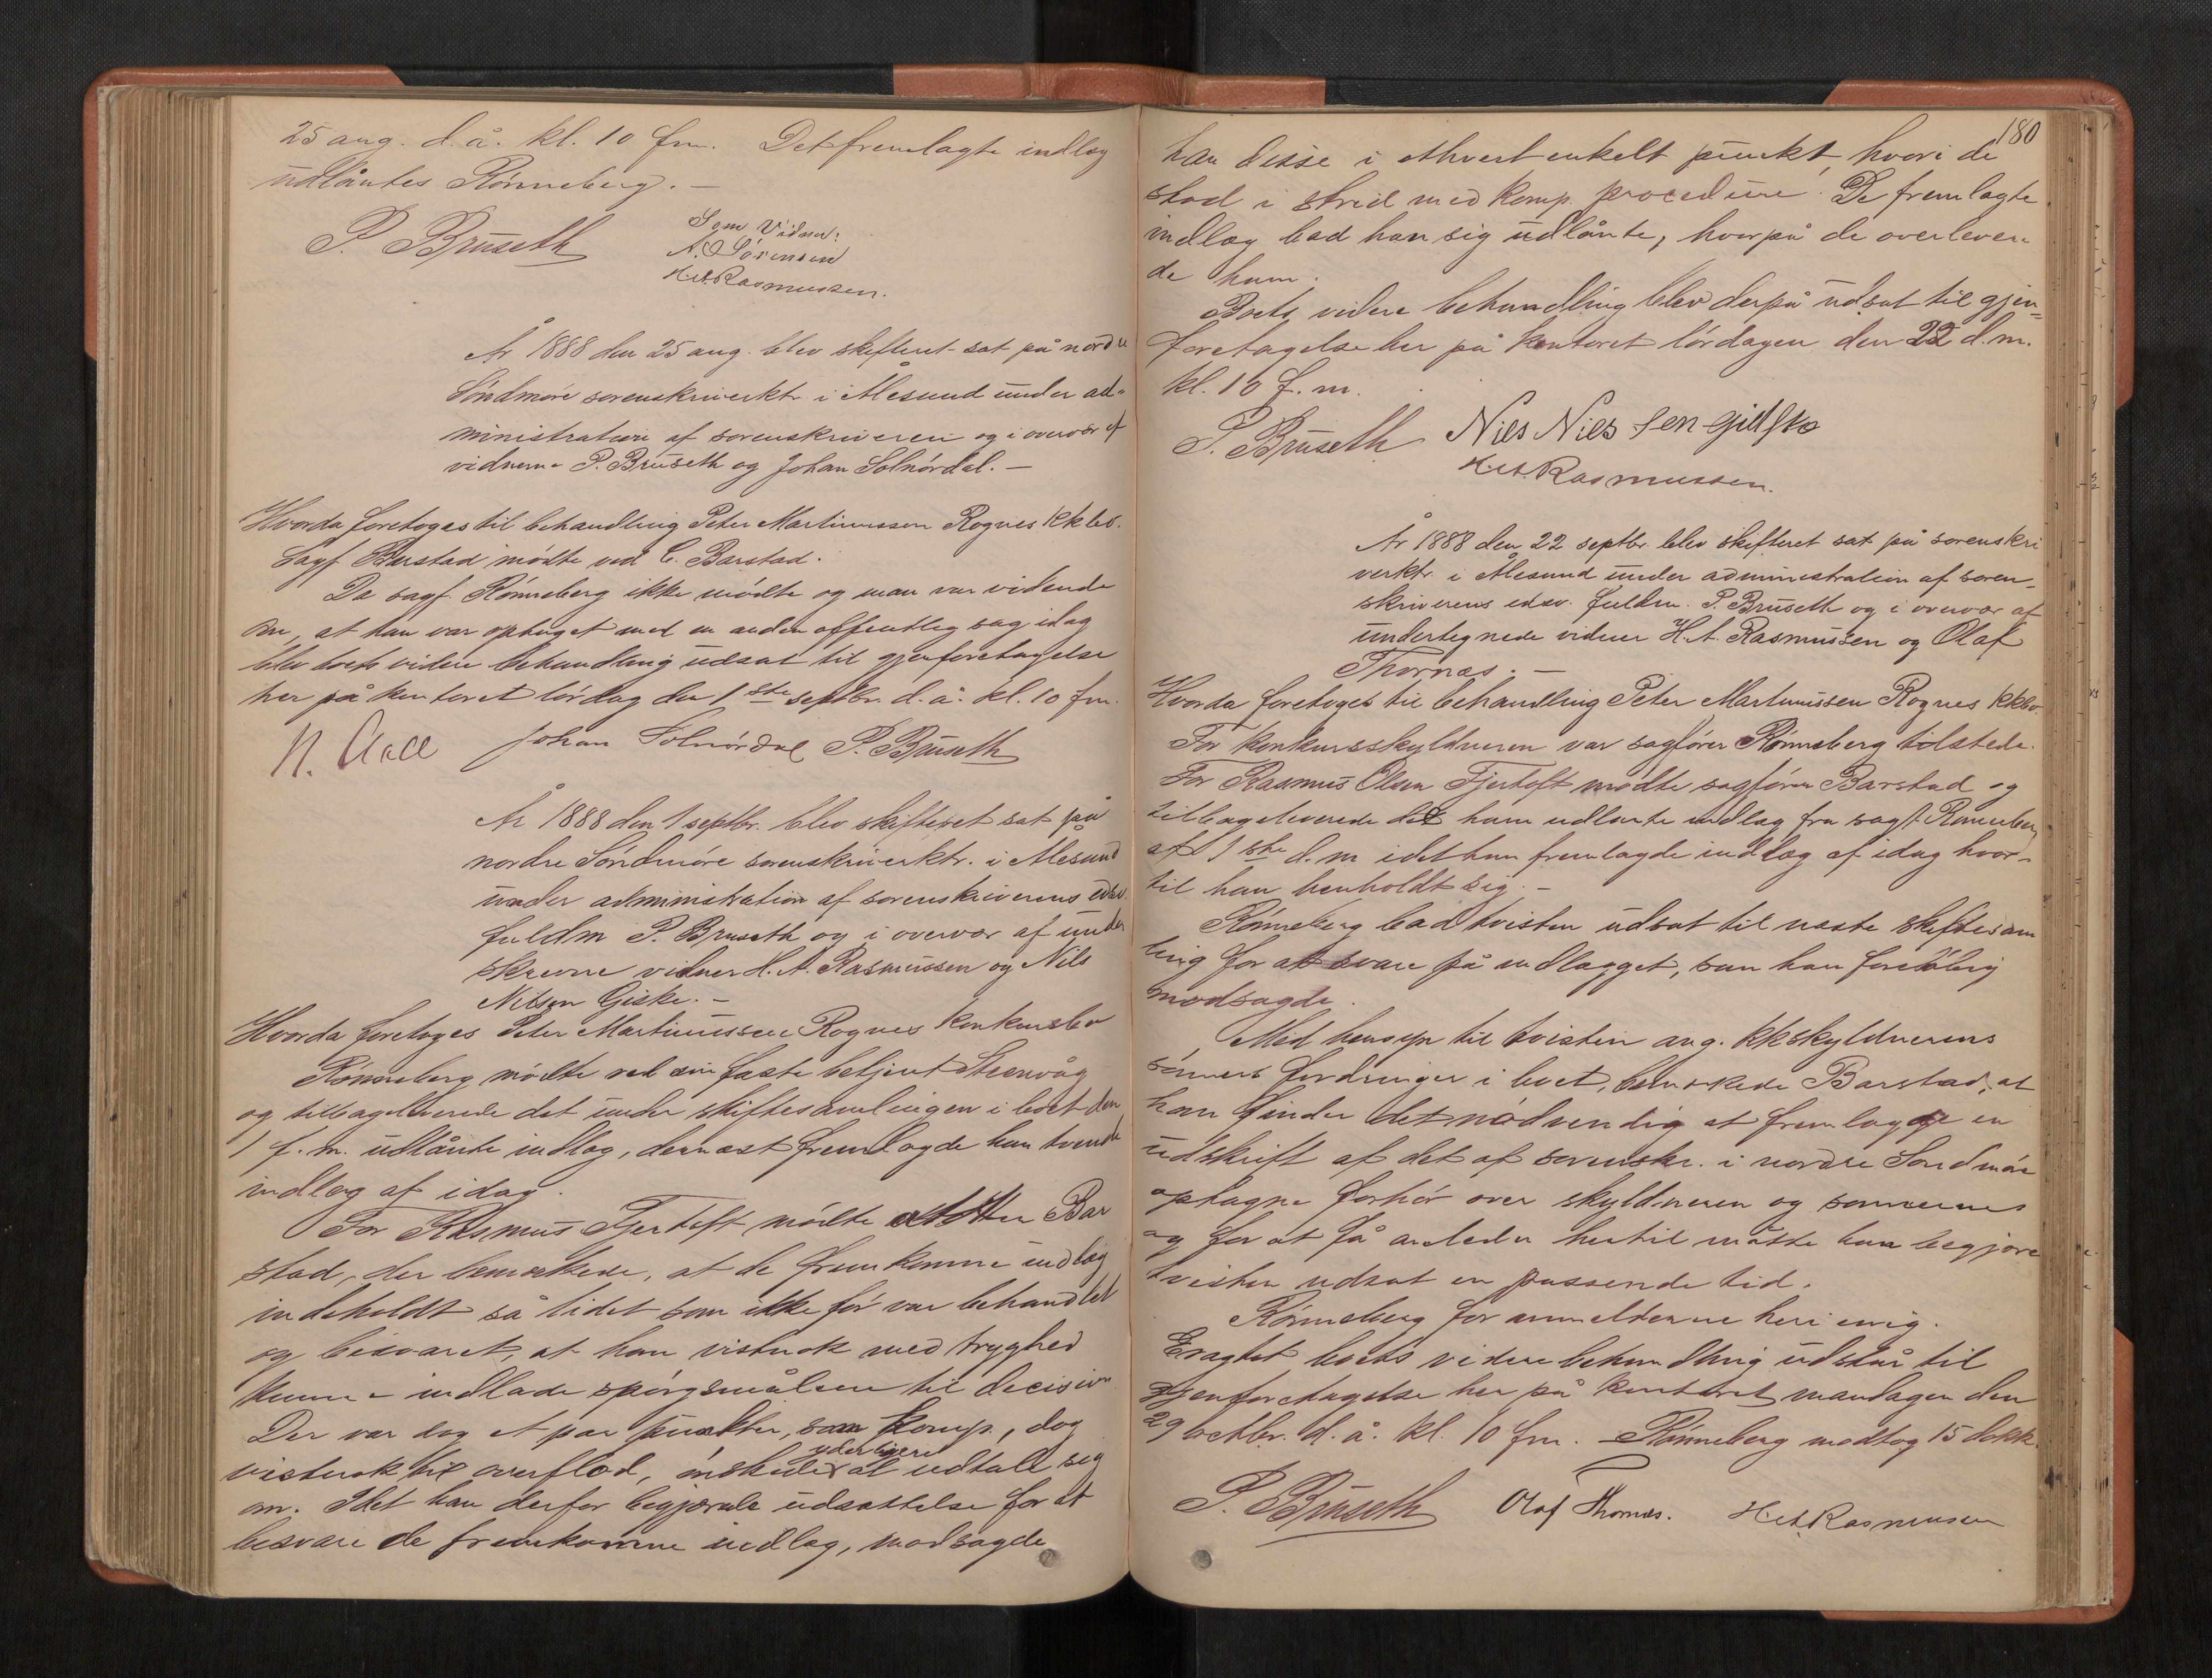 25 aug. d. å. kl. 10 fm. Det fremlagte indlæg
udlåntes Rønneberg. —
P. Bruseth
Som Vidner:
A. Sørensen
H. A. Rasmussen.
År 1888 den 25 aug. blev skifteret sat på nordre
Søndmøre sorenskriverktr. i Ålesund under ad-
ministration af sorenskriveren og i overvær af
vidnerne P. Bruseth og Johan Solnørdal. —
Hvorda foretoges til behandling Peter Martinussen Rognes kkbo.
Sagf. Barstad mødte ved C. Barstad.
Da sagf. Rønneberg ikke mødte og man var vidende
om, at han var optaget med en anden offentlig sag idag
blev boets videre behandling udsat til gjenforetagelse
her på kontoret lørdag den 1ste septbr. d. å. kl. 10 fm.
N. Aall Johan Solnørdal P. Bruseth
År 1888 den 1 septbr. blev skifteret sat på
nordre Søndmøre sorenskriverktr. i Ålesund
under administration af sorenskriverens edsv.
fuldm P. Bruseth og i overvær af under
skrevne vidner H. A. Rasmussen og Nils
Nilsen Giske. —
Hvorda foretoges Peter Martinussen Rognes konkursbo
Rønneberg mødte ved sin faste betjent Steenvåg
og tilbageleverede det under skiftesamlingen i boet den
1 f. m. udlånte indlæg, dernæst fremlagde han tvende
indlæg af idag.
For Rasmus Fjertoft mødte Bar
stad, der bemærkede, at de fremkomne indlæg
indeholdt så lidet som ikke før var behandlet
og besvaret, at han vistnok med tryghed
kunne indlade spørgsmålene til decision
Der var dog et par punkter, som komp., dog
vistnok til overflod, ønskede yderligere at udtale sig
om. Idet han derfor begjærede udsættelse for at
besvare de fremkomne indlæg, modsagde
180
han disse i ethvert enkelt punkt, hvori de
stod i strid med komp. procedure. De fremlagte
indlæg bad han sig udlånte, hvorpå de overlever-
de ham.
Boets videre behandling blev derpå udsat til gjen-
foretagelse her på kontoret lørdagen den 22 d. m.
kl. 10 f. m.
P. Bruseth Nils Nilssen Gidsko
H. A. Rasmussen.
År 1888 den 22 septbr. blev skifteret sat på sorenskri
verktr. i Ålesund under administration af soren-
skriverens edsv. fuldm. P. Bruseth og i overvær af
undertegnede vidner H. A. Rasmussen og Olaf
Thornæs. —
Hvorda foretoges til behandling Peter Martinussen Rognes kkbo
For konkursskyldneren var sagfører Rønneberg tilstede.
For Rasmus Olsen Fjertoft mødte sagfører Barstad og
tilbageleverede det ham udlånte indlæg fra sagf. Rønneberg
af 1ste d. m idet han fremlagde indlæg af idag hvor-
til han henholdt sig. —
Rønneberg bad tvisten udsat til næste skiftesam
ling for at svare på indlægget, som han foreløbig
modsagde.
Med hensyn til tvisten ang. kkskyldnerens
sønners fordringer i boet, bemærkede Barstad, at
han finder det nødvendig at fremlægge en
udskrift af det af sorenskr. i nordre Søndmøre
optagne forhør over skyldneren og sønnerne
og for at få anledn hertil måtte han begjære
tvisten udsat en passende tid.
Rønneberg for anmelderne heri enig.
Eragtet boets videre behandling udstår til
gjenforetagelse her på kontoret mandagen den
29 octbr. d. å. kl. 10 fm. — Rønneberg modtog 15 dokk.
P. Bruseth Olaf Thornæs. H. A. Rasmussen